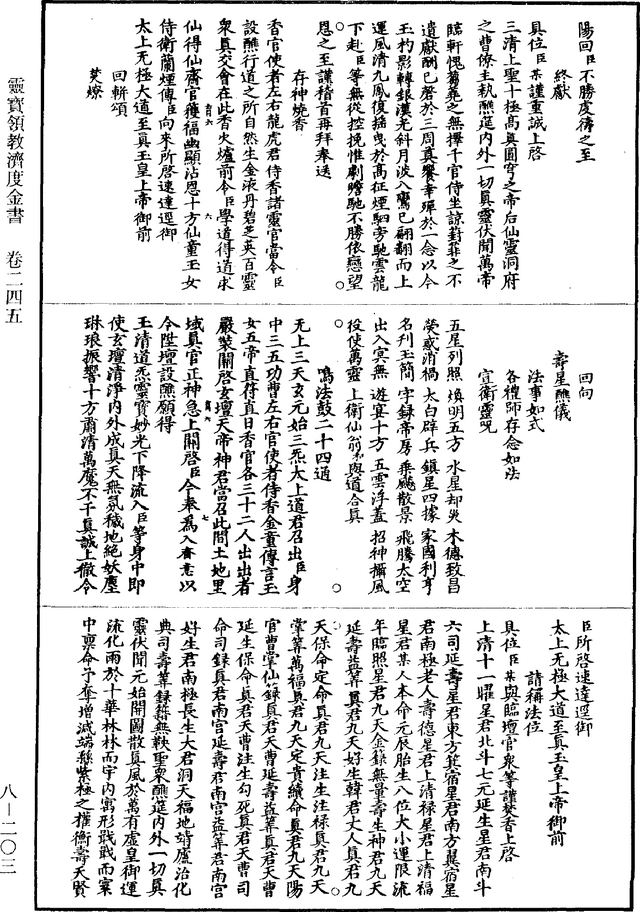 陽回臣不勝虔禱之至
終獻
具位臣某謹重誠上啓
三清上聖十極高真圓穹之帝后仙靈洞府
之曹僚主執醮筵内外一切真靈伏聞萬帝
臨軒愧蒭蕘之無擇千官侍坐諒葑菲之不
遺獻酬已罄於三周真饗幸殫於一念以今
玉杓影轉銀漢光斜月波入鸞已翩翩而上
運風清九鳳復摇曳於高征煙駟旁馳雲龍
下赴臣等無從控挽惟劇瞻馳不勝依戀望
恩之至謹稽首再拜奉送
存神燒香
香官使者左右龍虎君侍香諸靈官當令臣
設醮行道之所自然生金液丹碧芝英百靈
衆真交會在此香火爐前令臣學道得道求
仙得仙齋官獲福幽顯沾恩十方仙童玉女
侍衛蘭煙傳臣向來所啓速達逕御
太上无極大道至真玉皇上帝御前
回軿頌
焚燎
回向
壽星醮儀
法事如式
各禮師存念如法
宣衛靈咒
五星列照 煥明五方 水星却災 木德致昌
熒惑消禍 太白辟兵 鎮星四據 家國利亨
名刋玉簡 字録帝房 乘飈散景 飛騰太空
出入冥無 遊宴十方 五雲浮蓋 招神攝風
役使萬靈 上衛仙翁 與道合真
鳴法鼓二十四通
无上三天玄元始三炁太上道君召出臣身
中三五功曹左右官使者侍香金童傳言玉
女五帝直符直日香官各三十二人出出者
嚴裝關啓玄壇天帝神君當召此間土地里
域真官正神急上關啓臣今奉爲入齋意以
今陞壇設醮願得
玉清道炁靈寶妙光下降流入臣等身中即
使玄壇清淨内外成真天無氛穢地絶妖塵
琳琅振響十方肅清萬魔不干真誠上徹令
臣所啓速達逕御
太上无極大道至真玉皇上帝御前
請稱法位
具位臣某與臨壇官衆等謹焚香上啓
上清十一曜星君北斗七元延生星君南斗
六司延壽星君東方箕宿星君南方翼宿星
君南極老人壽德星君上清禄星君上清福
星君某人本命元辰胎生八位大小運限流
年臨照星君九天金籙無量壽生神君九天
延壽益筭真君九天好生韓君丈人真君九
天保命定命真君九天注生注禄真君九天
掌筭萬福真君九天定貴續命真君九天陽
官曹掌仙籙真君天曹延壽益筭真君天曹
延生保命真君天曹注生勾死真君天曹司
命司録真君南宫延壽君南宫益筭君南宫
好生君南極長生大君洞天福地靖廬治化
典司壽筭録籍無鞅聖衆醮筵内外一切真
靈伏聞元始開圖散真風於萬有虛皇御運
流化雨於十華林林而宇内寓形戢戢而寰
中禀命予奪增減端繇紫極之權衡壽夭賢
靈寶領教濟度金書 卷二四五
八—二〇三